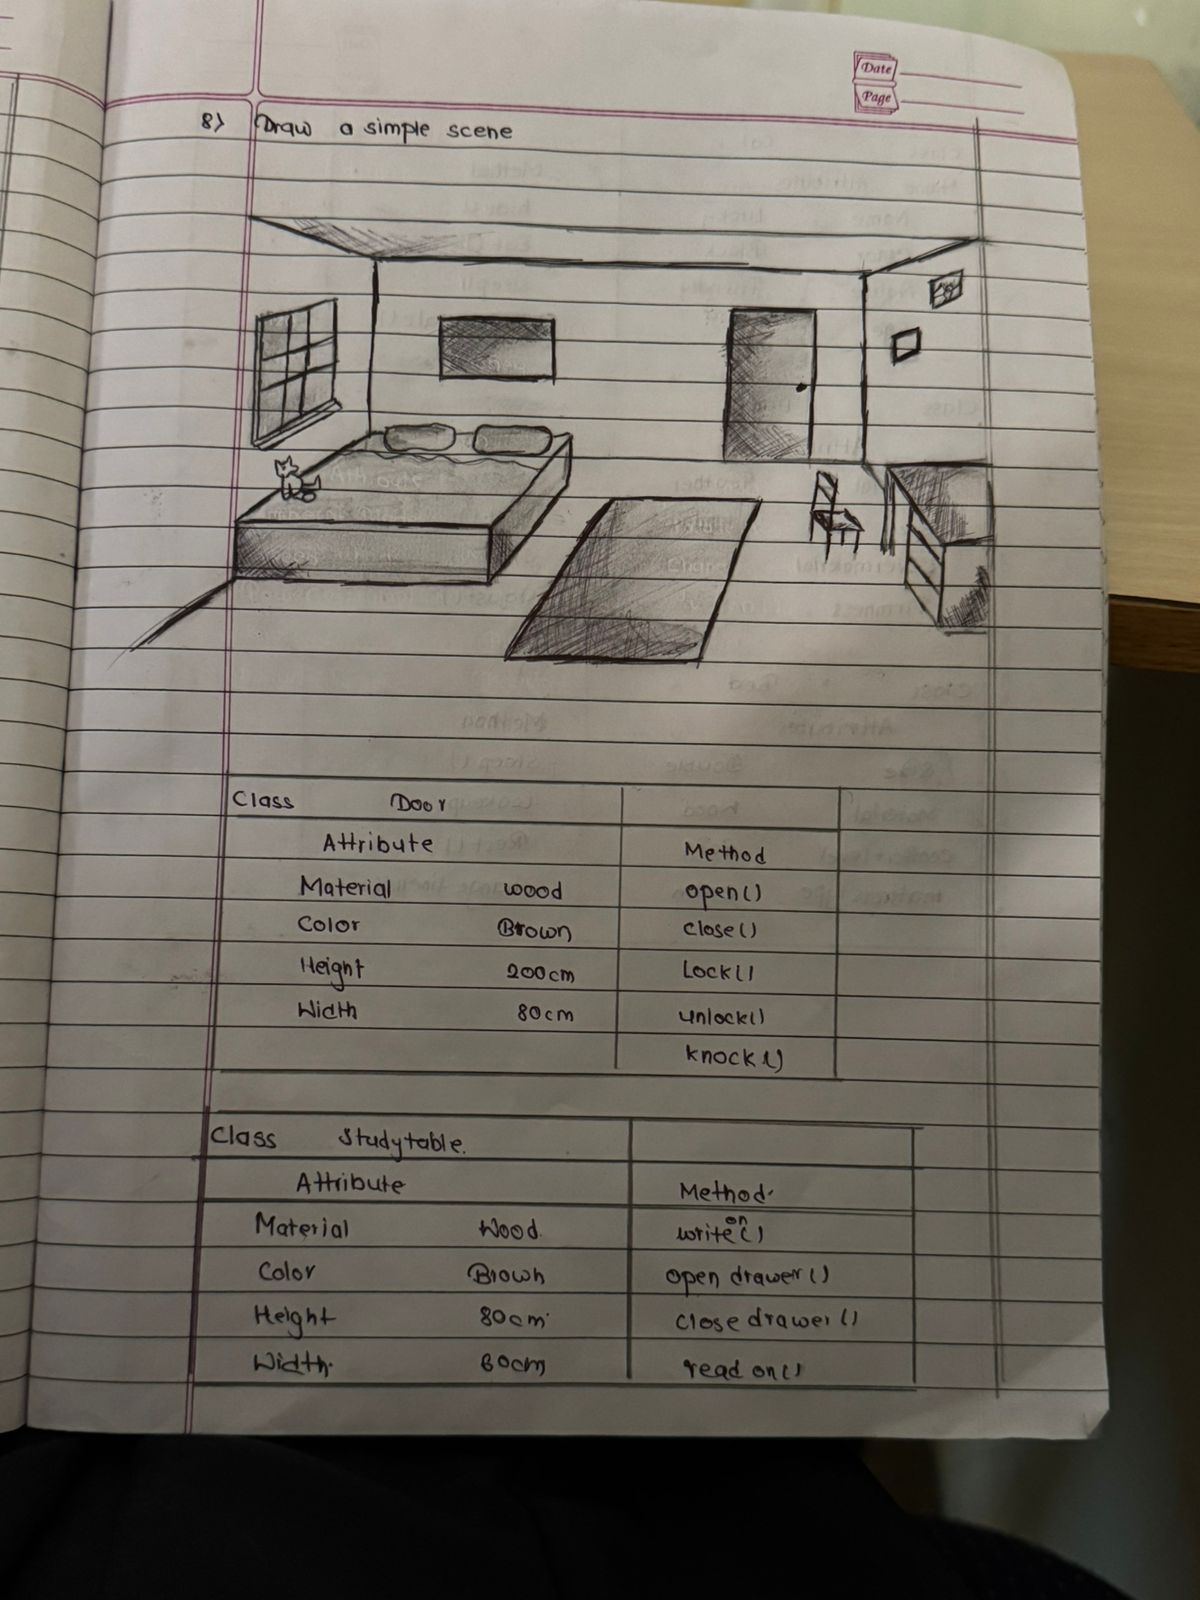 Date
Page
8) Draw a simple scene
Class Door
Attribute Method
Material wood open()
Color Brown close()
Height 200cm Lock()
Width 80cm unlock()
knock()
Class Studytable.
Attribute Method
Material Wood write on()
Color Brown open drawer()
Height 80cm close drawer()
Width 60cm read on()